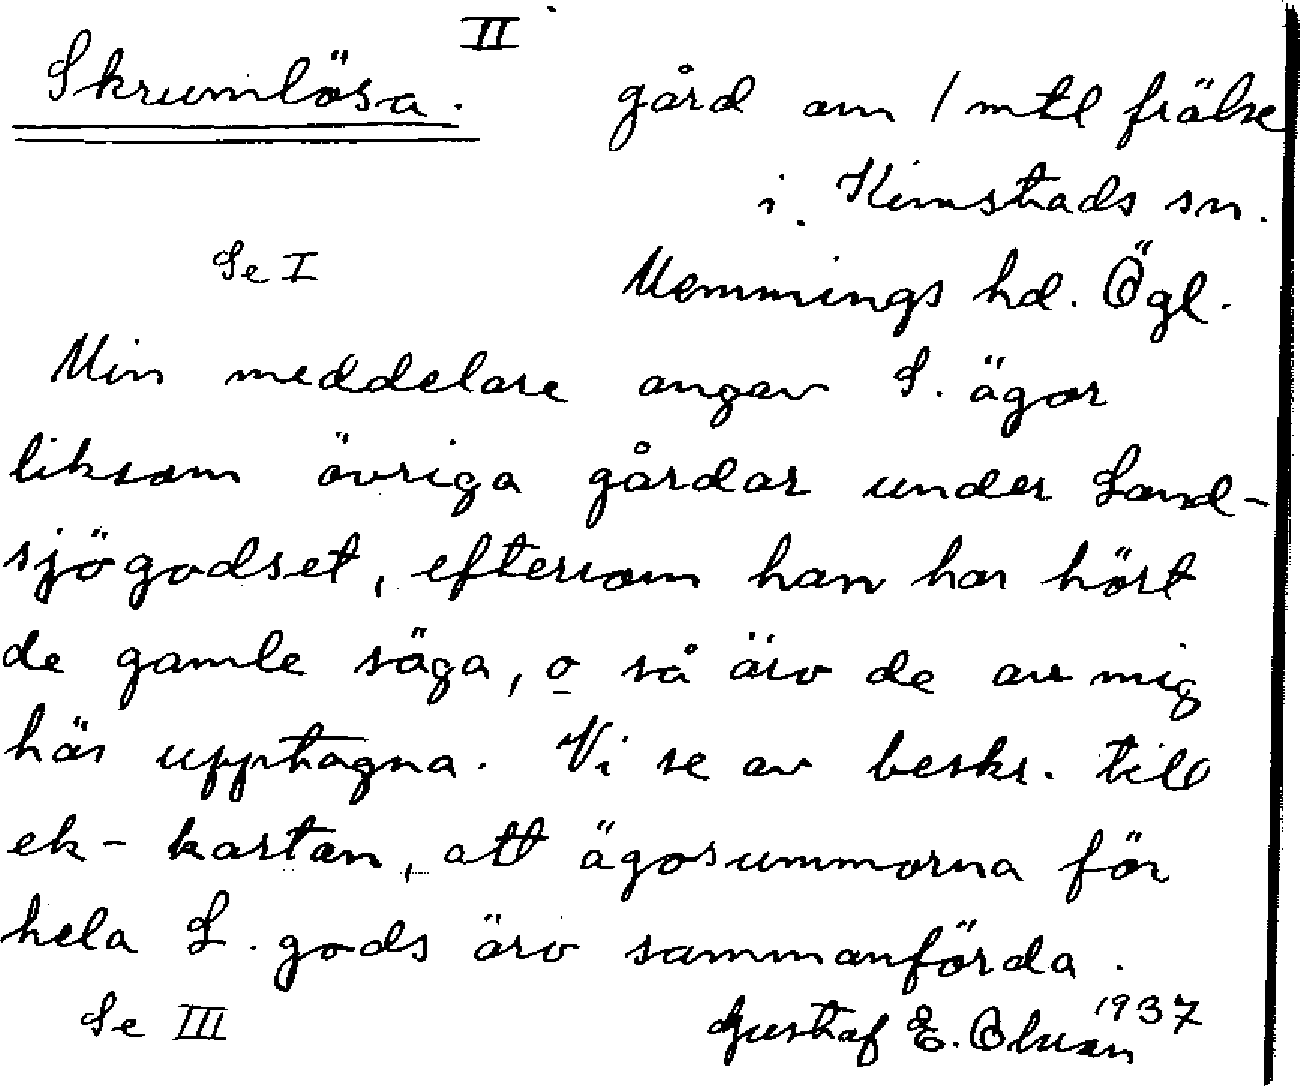 II
Skrumlösa. gård om 1 mtl frälse
i Kimstads sn.
Se I Memmings hd. Ögl.
Min meddelare angav S. ägor
liksom övriga gårdar under Land-
sjögodset, eftersom han har hört
de gamle säga, o så äro de av mig
här upptagna. Vi se av beskr. till
ek-kartan, att ägosummorna för
hela L. gods äro sammanförda.
Se III Gustaf E. Olsson 1937